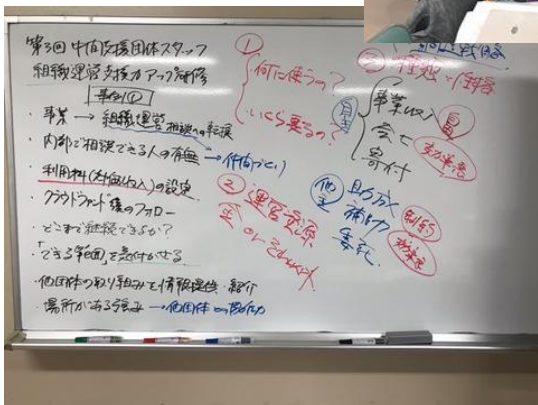 第3回 中間支援団体スタッフ
組織運営支援力アップ研修
事例①
・事業 → 組織運営相談への転換
・内部で相談できる人の有無 → 仲間づくり
・利用料(対価収入)の設定
・クラウドファンド後のフォロー
・どこまで継続できるか?
・「できる範囲」を気付かせる
・他団体の取り組みを情報提供・紹介
・場所がある強み → 他団体との協力
①
何に使うの?
いくら要るの?
② 運営資源
金 or それ以外
③ 種類
自主
事業収入
会費
寄付
他主
助成
補助
委託
制約